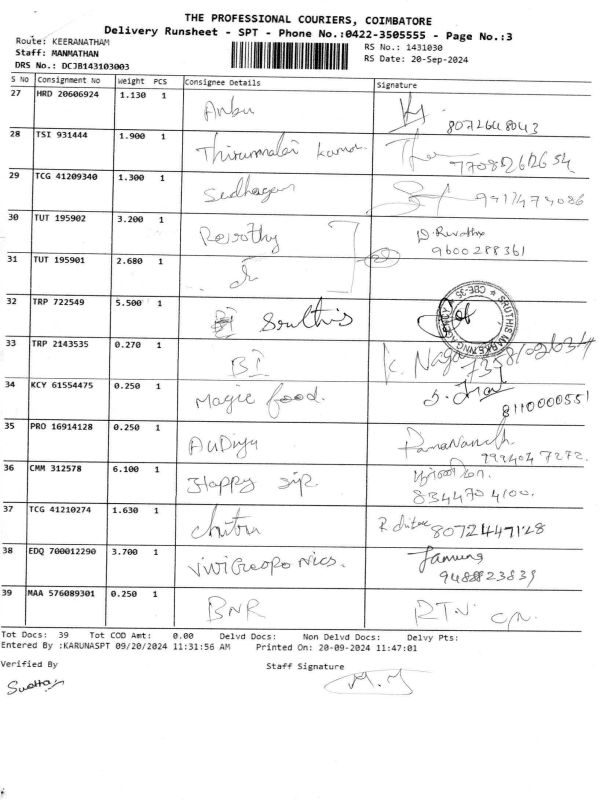 THE PROFESSIONAL COURIERS, COIMBATORE
Delivery Runsheet - SPT - Phone No.:0422-3505555 - Page No.:3
Route: KEERANATHAM
RS No.: 1431030
Staff: MANMATHAN
RS Date: 20-Sep-2024
DRS No.: DCJB143103003
S No Consignment No Weight PCS Consignee Details Signature
27 HRD 20606924 1.130 1 Anbu
8072648043
28 TSI 931444 1.900 1 Thirumalai Kumar
29 TCG 41209340 1.300 1
30 TUT 195902 3.200 1 Revothy D. Revathy
9600288361
31 TUT 195901 2.680 1
32 TRP 722549 5.500 1 Sruthis
SRUTHIS MARKETING CBE-35
33 TRP 2143535 0.270 1 BI
34 KCY 61554475 0.250 1 Magic food.
8110000551
35 PRO 16914128 0.250 1
36 CMM 312578 6.100 1 Happy sip
8344704100.
37 TCG 41210274 1.630 1 Chitra R chitra 8072447128
38 EDQ 700012290 3.700 1
39 MAA 576089301 0.250 1 BNR RTN
Tot Docs: 39 Tot COD Amt: 0.00 Delvd Docs: Non Delvd Docs: Delvy Pts:
Entered By :KARUNASPT 09/20/2024 11:31:56 AM Printed On: 20-09-2024 11:47:01
Verified By Staff Signature